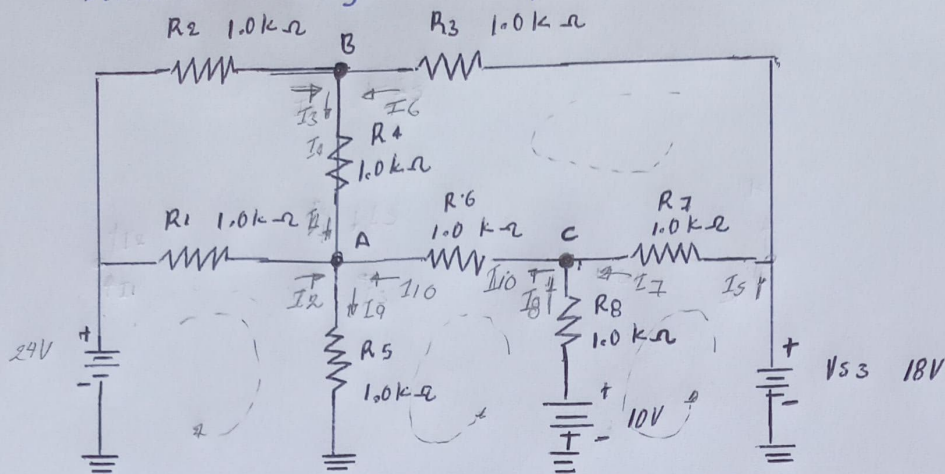 R2 1.0kΩ
R3 1.0kΩ
B
I3
I6
I4
R4
1.0kΩ
R1 1.0kΩ
I4
A
R6
1.0kΩ
C
R7
1.0kΩ
I2
I9
I10
I10
I8
I7
I5
R8
1.0kΩ
24V
+
-
R5
1.0kΩ
+
10V
-
+
-
VS3 18V